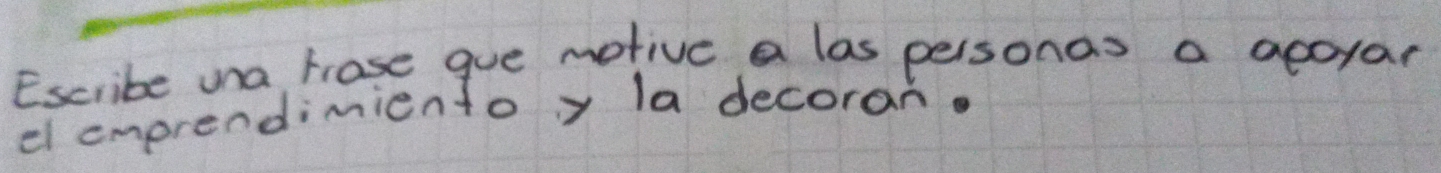 Escribe una frase que motive a las personas a apoyar
el emprendimiento y la decoran.